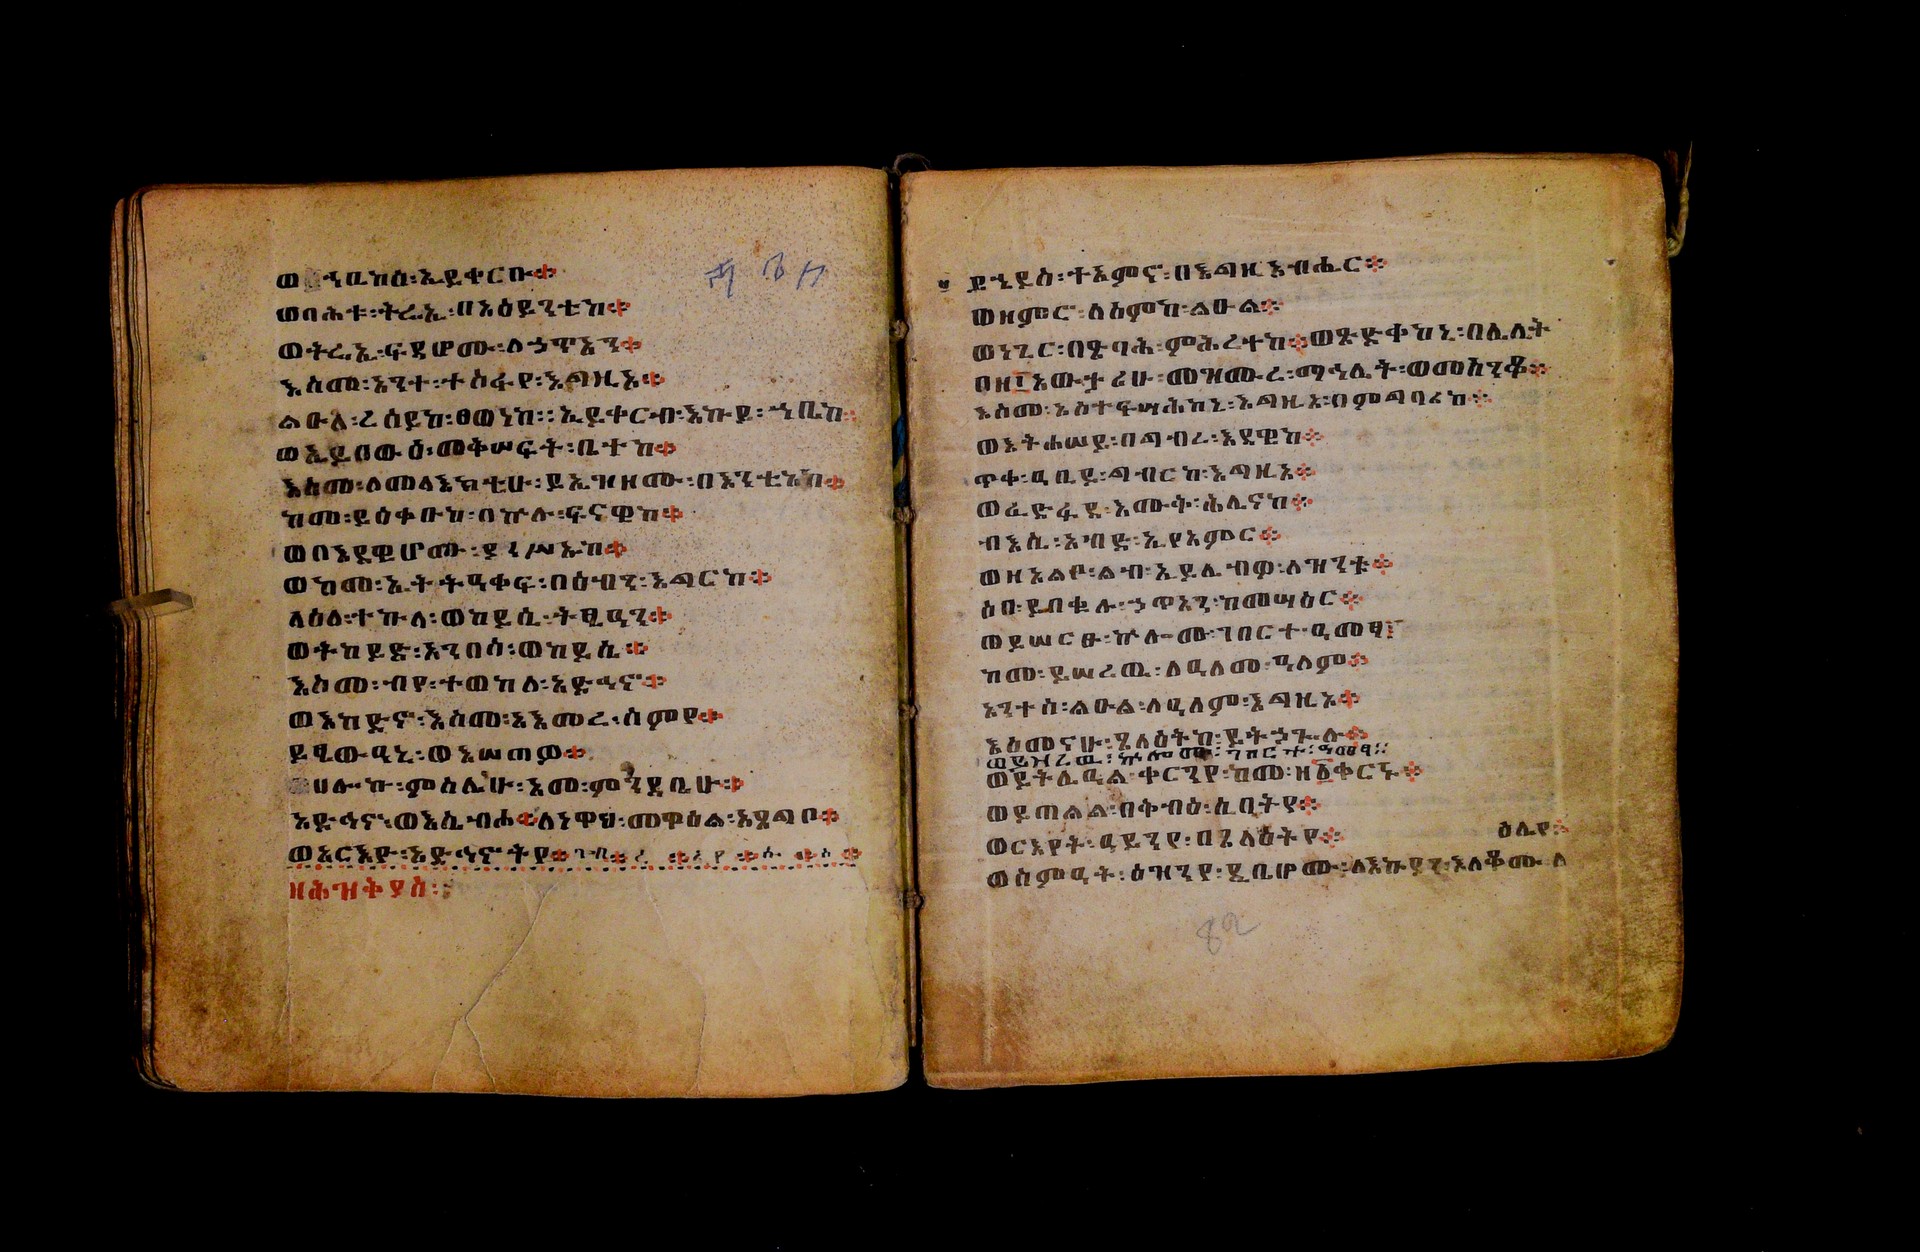 ወኀቤከሰ፡ኢይቀርቡ፨ ፳ ፺ ፖ
ወባሕቱ፡ትሬኢ፡በአዕይንቲከ፨
ወትሬኢ፡ፍዳሆሙ፡ለኃጥኣን፨
እስመ፡አንተ፡ተስፋየ፡እግዚኦ፨
ልዑለ፡ረሰይከ፡ፀወነከ፡፡ኢይቀርብ፡እኩይ፡ኀቤከ፨
ወኢይበውዕ፡መቅሠፍት፡ቤተከ፨
እስመ፡ለመላእክቲሁ፡ይኤዝዞሙ፡በእንቲአከ፨
ከመ፡ይዕቀቡከ፡በኵሉ፡ፍናዊከ፨
ወበእደዊሆሙ፡ያነሥኡከ፨
ወከመ፡ኢትትዓቀፍ፡በዕብን፡እግርከ፨
ላዕለ፡ተኵላ፡ወከይሲ፡ትፄዓን፨
ወትከይድ፡አንበሳ፡ወከይሴ፨
እስመ፡ብየ፡ተወከለ፡አድኅኖ፨
ወእከድኖ፡እስመ፡አእመረ፡ስምየ፨
ይጼውዓኒ፡ወእሠጠዎ፨
ሀሎኩ፡ምስሌሁ፡አመ፡ምንዳቤሁ፨
አድኅኖ፡ወእሴብሖ፨ለነዋኅ፡መዋዕል፡አጸግቦ፨
ወአርእዮ፡አድኅኖትየ፨
ዘሕዝቅያስ፡
ይኄይስ፡ተአምኖ፡በእግዚአብሔር፨
ወዘምሮ፡ለስምከ፡ልዑል፨
ወነጊር፡በጽባሕ፡ምሕረተከ፨ወጽድቀከኒ፡በሌሊት
በዘ፲አውታሪሁ፡መዝሙረ፡ማኅሌት፡ወመሰንቆ፨
እስመ፡አስተፍሣሕከኒ፡እግዚኦ፡በምግባሪከ፨
ወእትሐሠይ፡በግብረ፡እደዊከ፨
ጥቀ፡ዓቢይ፡ግብርከ፡እግዚኦ፨
ወፈድፋደ፡እሙቅ፡ሕሊናከ፨
ብእሲ፡አብድ፡ኢየአምር፨
ወዘአልቦ፡ልብ፡ኢይሌብዎ፡ለዝንቱ፨
ሶበ፡ይበቁሉ፡ኃጥኣን፡ከመ፡ሣዕር፨
ወይሠርፁ፡ኵሎሙ፡ገበርተ፡ዓመፃ፨
ከመ፡ይሠረዉ፡ለዓለመ፡ዓለም፨
አንተሰ፡ልዑል፡ለዓለም፡እግዚኦ፨
እስመ፡ናሁ፡ጸላዕትከ፡ይትኃጐሉ፨
ወይዝረዉ፡ኵሎሙ፡ገበርተ፡ዓመፃ፡፡
ወይትሌዓል፡ቀርንየ፡ከመ፡ዘ፩ቀርኑ፨
ወይጠልል፡በቅብዕ፡ሲበትየ፨
ወርእየት፡ዓይንየ፡በጸላዕትየ፨
ዕሌየ፨
ወሰምዓት፡ዕዝንየ፡ዲቤሆሙ፡ለእኩያን፡እለቆሙ፡ላ
82